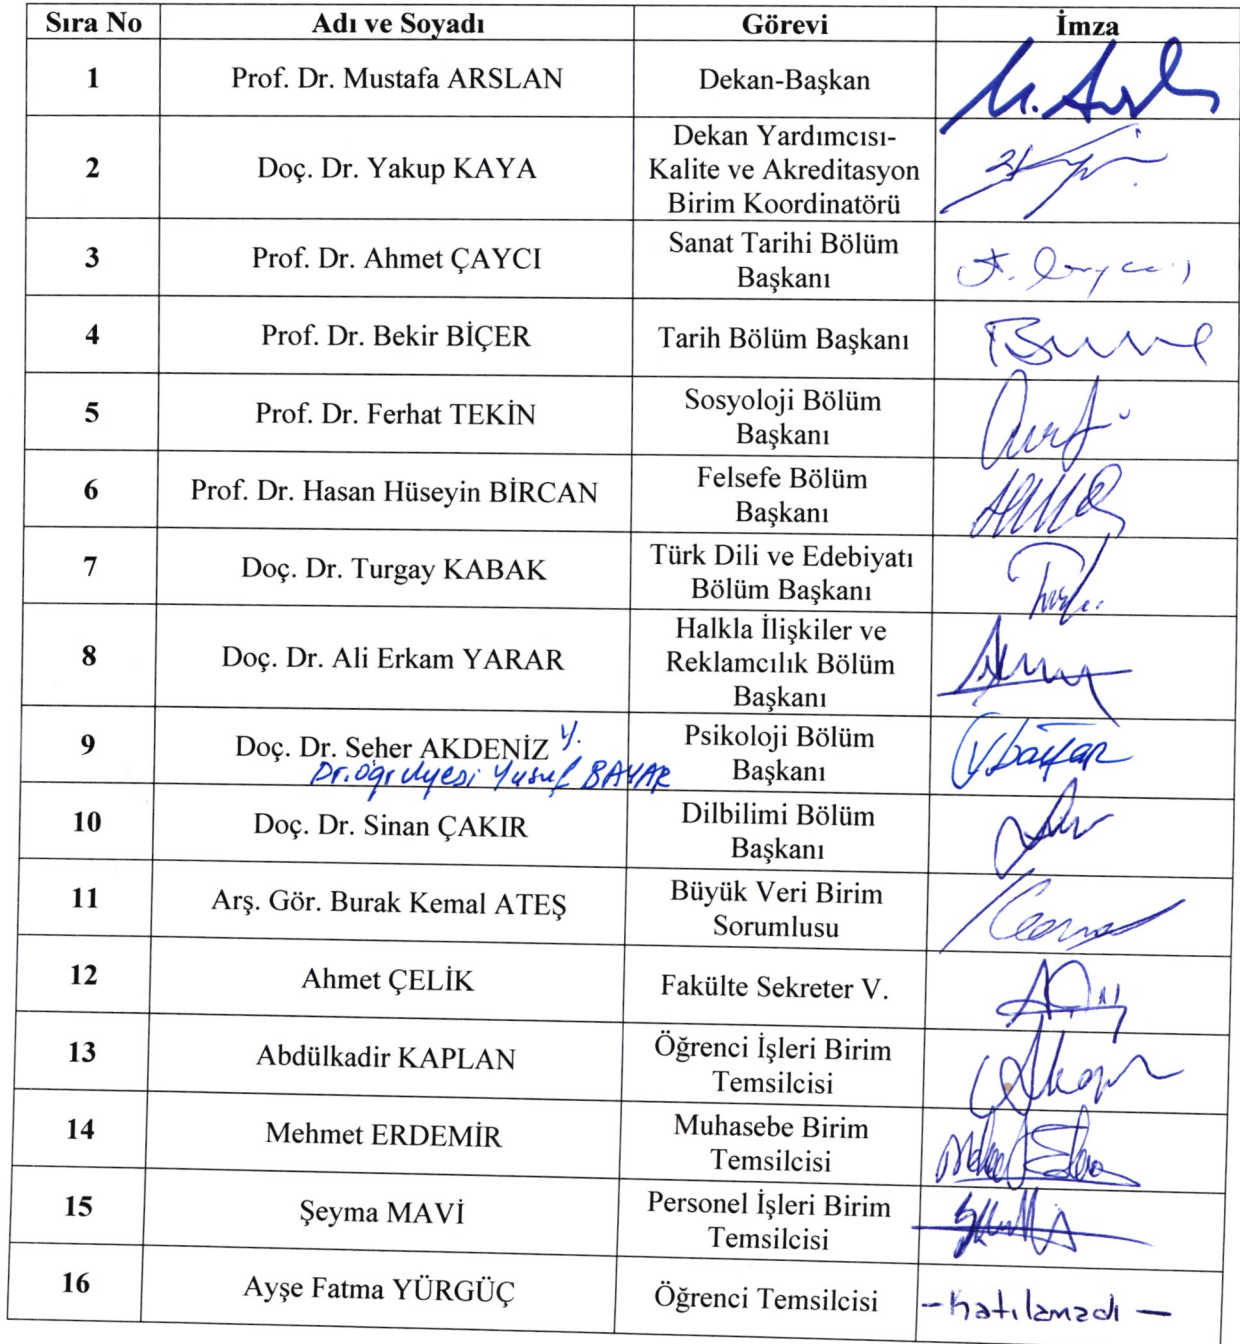 Sıra No Adı ve Soyadı Görevi İmza
1 Prof. Dr. Mustafa ARSLAN Dekan-Başkan
Dekan Yardımcısı-
2 Doç. Dr. Yakup KAYA Kalite ve Akreditasyon
Birim Koordinatörü
3 Prof. Dr. Ahmet ÇAYCI Sanat Tarihi Bölüm
Başkanı
4 Prof. Dr. Bekir BİÇER Tarih Bölüm Başkanı
5 Prof. Dr. Ferhat TEKİN Sosyoloji Bölüm
Başkanı
6 Prof. Dr. Hasan Hüseyin BİRCAN Felsefe Bölüm
Başkanı
7 Doç. Dr. Turgay KABAK Türk Dili ve Edebiyatı
Bölüm Başkanı
Halkla İlişkiler ve
8 Doç. Dr. Ali Erkam YARAR Reklamcılık Bölüm
Başkanı
9 Doç. Dr. Seher AKDENİZ y. Psikoloji Bölüm
Dr. Öğr Üyesi Yusuf BAYAR Başkanı
10 Doç. Dr. Sinan ÇAKIR Dilbilimi Bölüm
Başkanı
11 Arş. Gör. Burak Kemal ATEŞ Büyük Veri Birim
Sorumlusu
12 Ahmet ÇELİK Fakülte Sekreter V.
13 Abdülkadir KAPLAN Öğrenci İşleri Birim
Temsilcisi
14 Mehmet ERDEMİR Muhasebe Birim
Temsilcisi
15 Şeyma MAVİ Personel İşleri Birim
Temsilcisi
16 Ayşe Fatma YÜRGÜÇ Öğrenci Temsilcisi - Katılamadı -